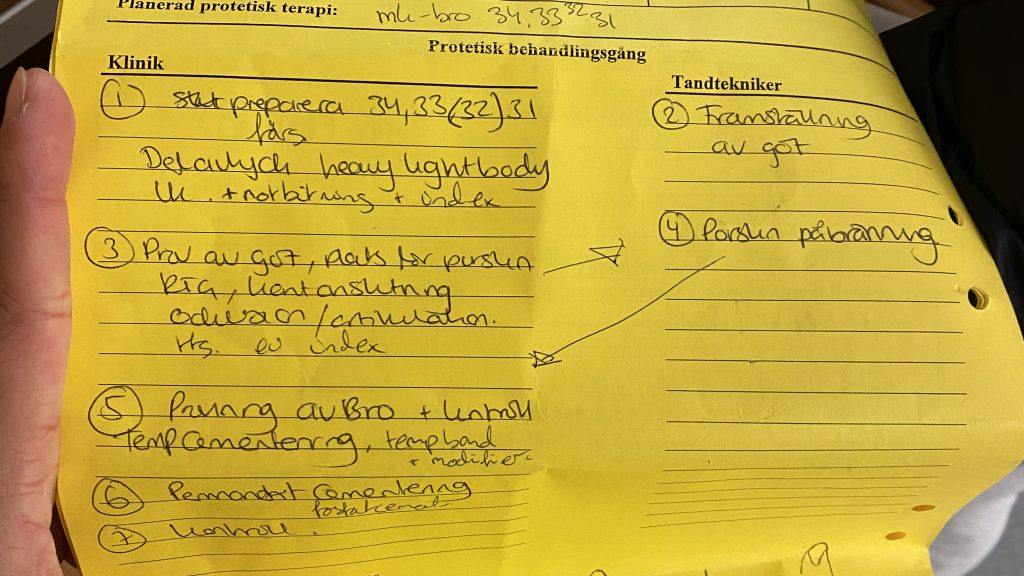 Planerad protetisk terapi: mk-bro 34,33 32 31
Protetisk behandlingsgång
Klinik
① preparera 34,33(32)31
färg
Delavtryck heavy lightbody
Uk. + motbitning + index
③ Prov av göt, plats för porslin
RTG, kantanslutning
ocklusion / artikulation.
ev index
⑤ Provning av Bro + kontroll
Tempcementering, tempbond
+ modifier
⑥ Permanent Cementering
fosfatcement
⑦ kontroll.
Tandtekniker
② Framställning
av göt
④ Porslin påbränning